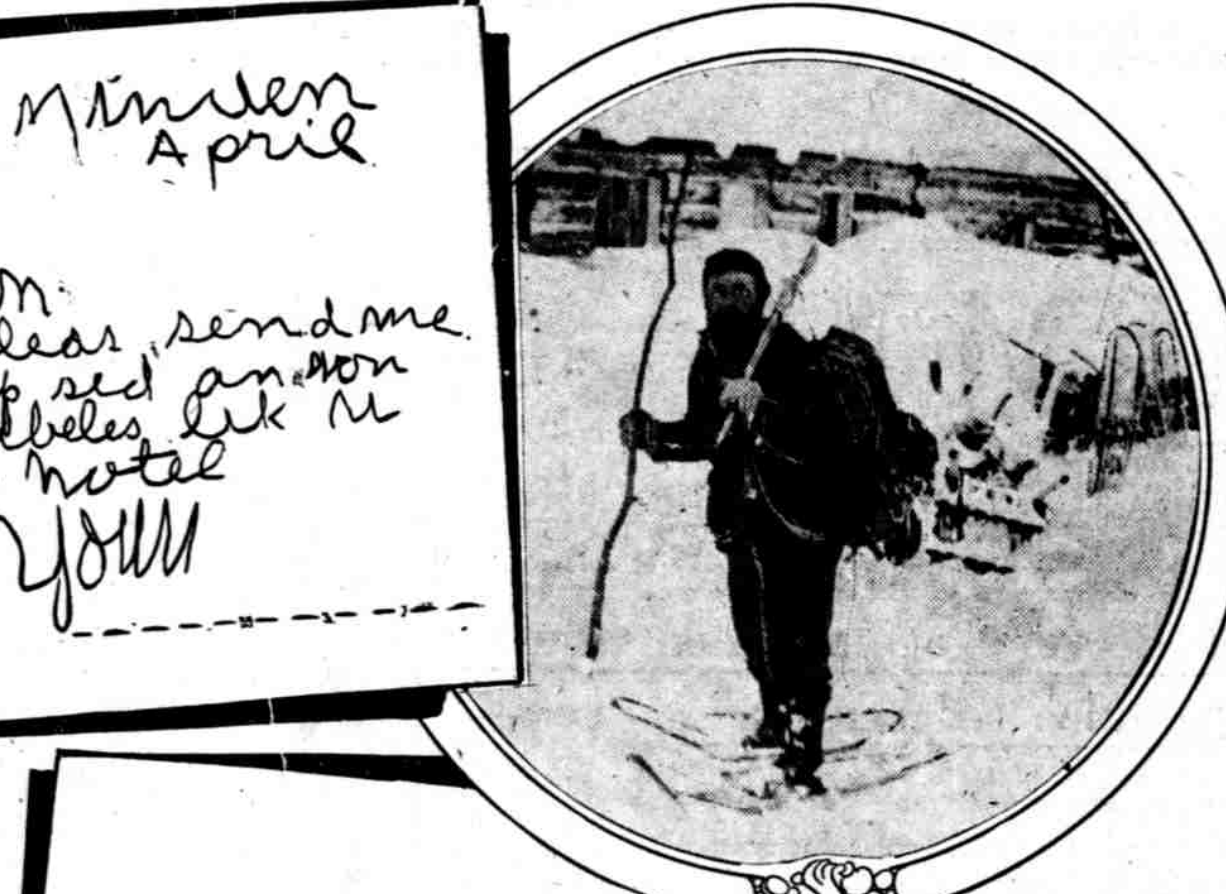 Minden
April
n
leas send me
sed an son
beles lik u
hotel
your